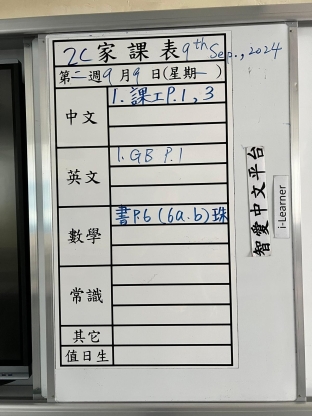 2C 家課表 9th Sep., 2024
第二週9月9日(星期一)
中文
1. 課工P.1, 3
英文
1. GB P.1
數學
書P.6 (6a.b) 珠
常識
其它
值日生
智愛中文平台
i-Learner